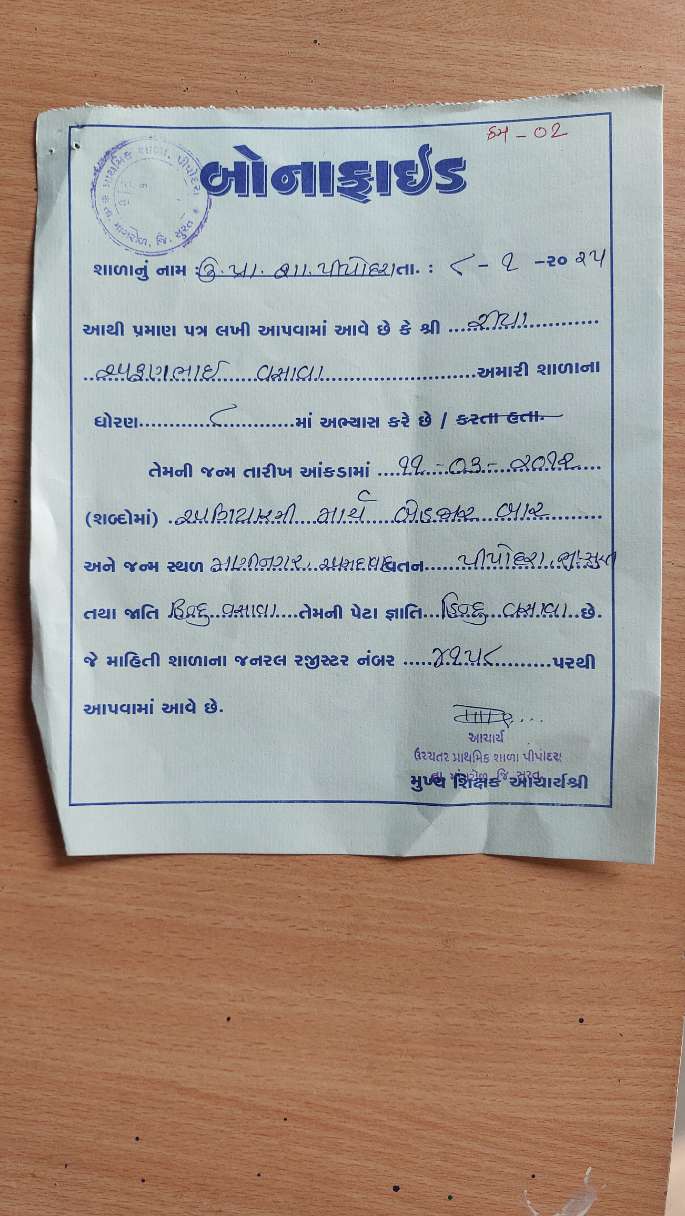 ક્રમ - 02
પ્રાથમિક શાળા, પીપોદરા
તા. માંગરોળ, જિ. સુરત
બોનાફાઈડ
શાળાનું નામ : ઉ. પ્રા. શા. પીપોદરા તા. : ૮ - ૧ - ૨૦ ૨૫
આથી પ્રમાણ પત્ર લખી આપવામાં આવે છે કે શ્રી
વસાવા અમારી શાળાના
ધોરણ ૮ માં અભ્યાસ કરે છે / કરતા હતા.
તેમની જન્મ તારીખ આંકડામાં ૧૧ - ૦૩ - ૨૦૧૨
(શબ્દોમાં) અગિયારમી માર્ચ બેહજાર બાર
અને જન્મ સ્થળ વતન પીપોદરા
તથા જાતિ હિન્દુ વસાવા તેમની પેટા જ્ઞાતિ હિન્દુ વસાવા છે.
જે માહિતી શાળાના જનરલ રજીસ્ટર નંબર ૪૧૫૮ પરથી
આપવામાં આવે છે.
આચાર્ય
ઉચ્ચતર પ્રાથમિક શાળા પીપોદરા
તા. માંગરોળ, જિ. સુરત
મુખ્ય શિક્ષક આચાર્યશ્રી